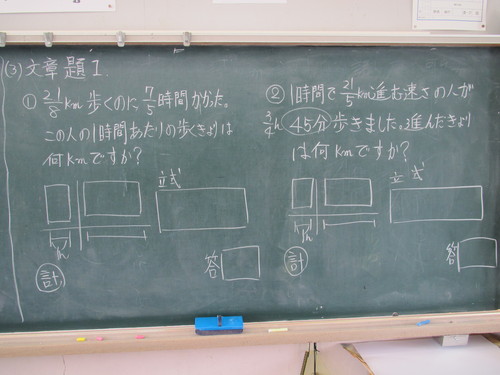 (3) 文章題 1.
① 21/8 km 歩くのに 7/5 時間かかった。
この人の1時間あたりの歩くきょりは
何kmですか?
立式
1h
計
答
② 1時間で 21/5 km進む速さの人が
3/4 h 45分歩きました。進んだきょり
は何kmですか?
立式
1h
計
答